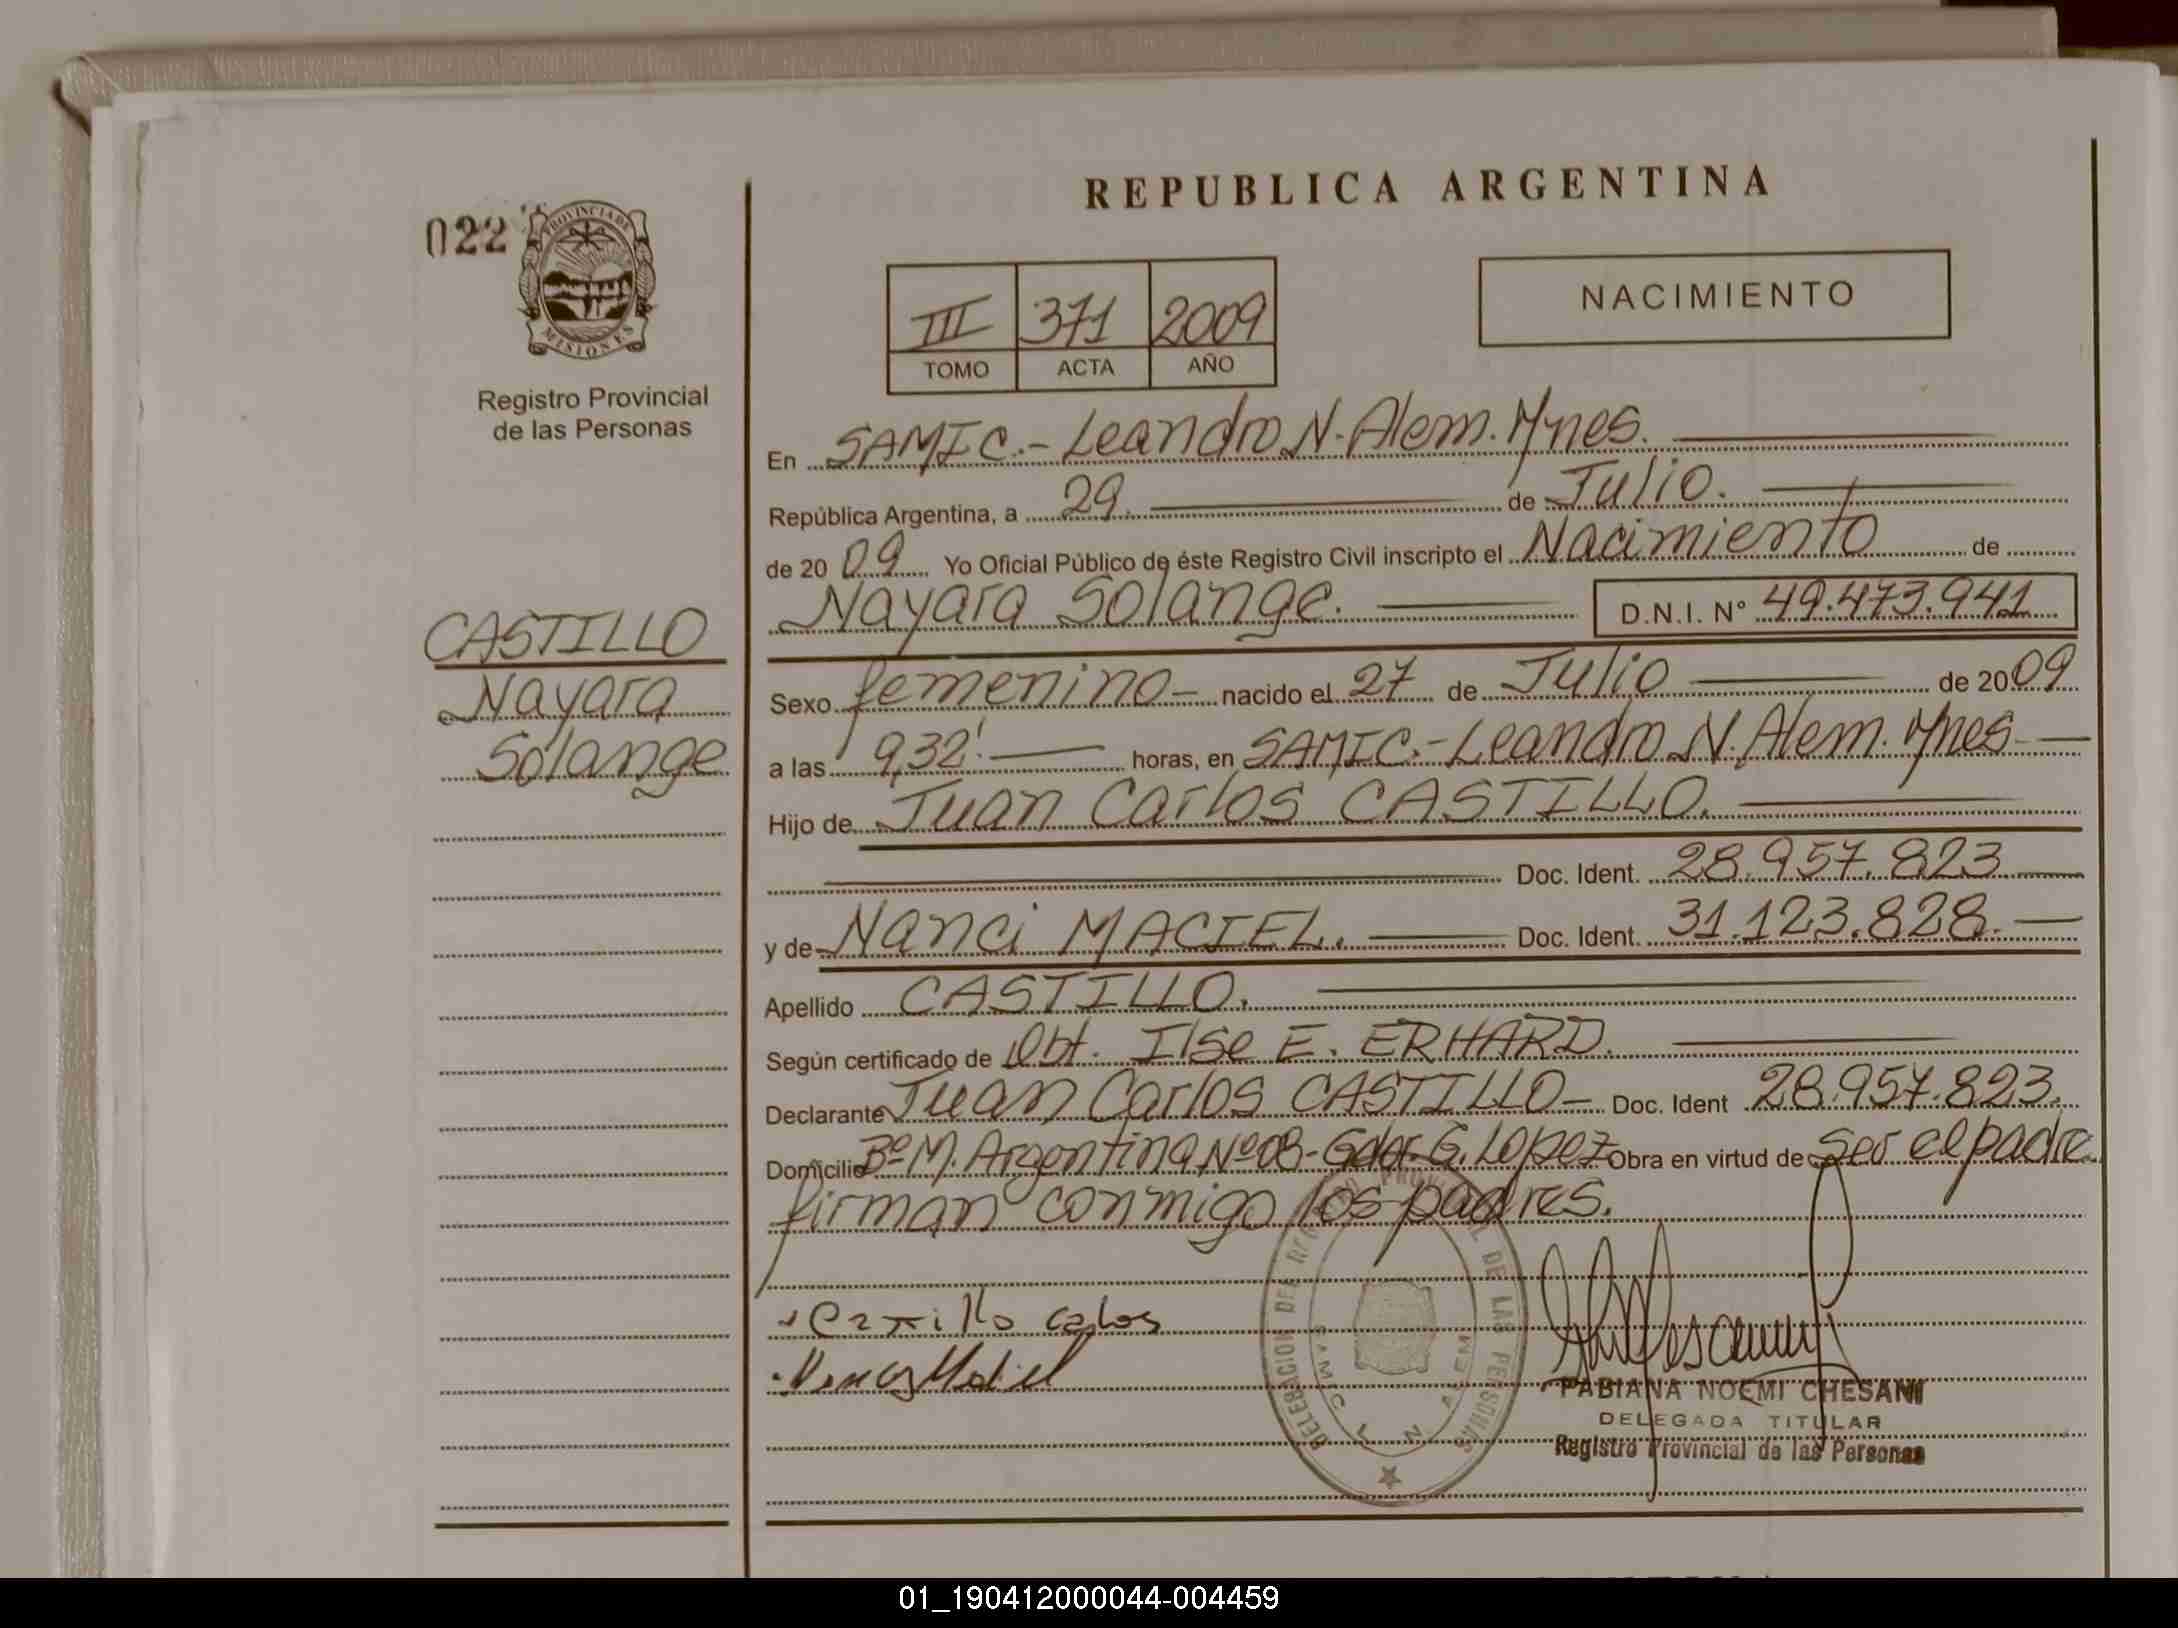 REPUBLICA ARGENTINA
022
PROVINCIA DE
MISIONES
Registro Provincial
de las Personas
III 371 2009
TOMO ACTA AÑO
NACIMIENTO
En SAMIC.- Leandro N. Alem. Mnes.
República Argentina, a 29. de Julio.
de 20 09 Yo Oficial Público de éste Registro Civil inscripto el Nacimiento de
Nayara Solange. D.N.I. N° 49.473.941
CASTILLO
Nayara
Solange
Sexo femenino nacido el 27 de Julio de 20 09
a las 9,32' horas, en SAMIC.- Leandro N. Alem. Mnes
Hijo de Juan Carlos CASTILLO.
Doc. Ident. 28.957.823
y de Nanci MACIEL. Doc. Ident. 31.123.828.
Apellido CASTILLO.
Según certificado de Obt. Ilse E. ERHARD.
Declarante Juan Carlos CASTILLO Doc. Ident 28.957.823.
Domicilio Bº M. Argentina Nº 08 - Gdor. G. Lopez Obra en virtud de ser el padre.
firman conmigo los padres.
DELEGACION DEL REGISTRO PROVINCIAL DE LAS PERSONAS
SAMIC L N ALEM
Castillo Carlos
FABIANA NOEMI CHESANI
DELEGADA TITULAR
Registro Provincial de las Personas
01_190412000044-004459